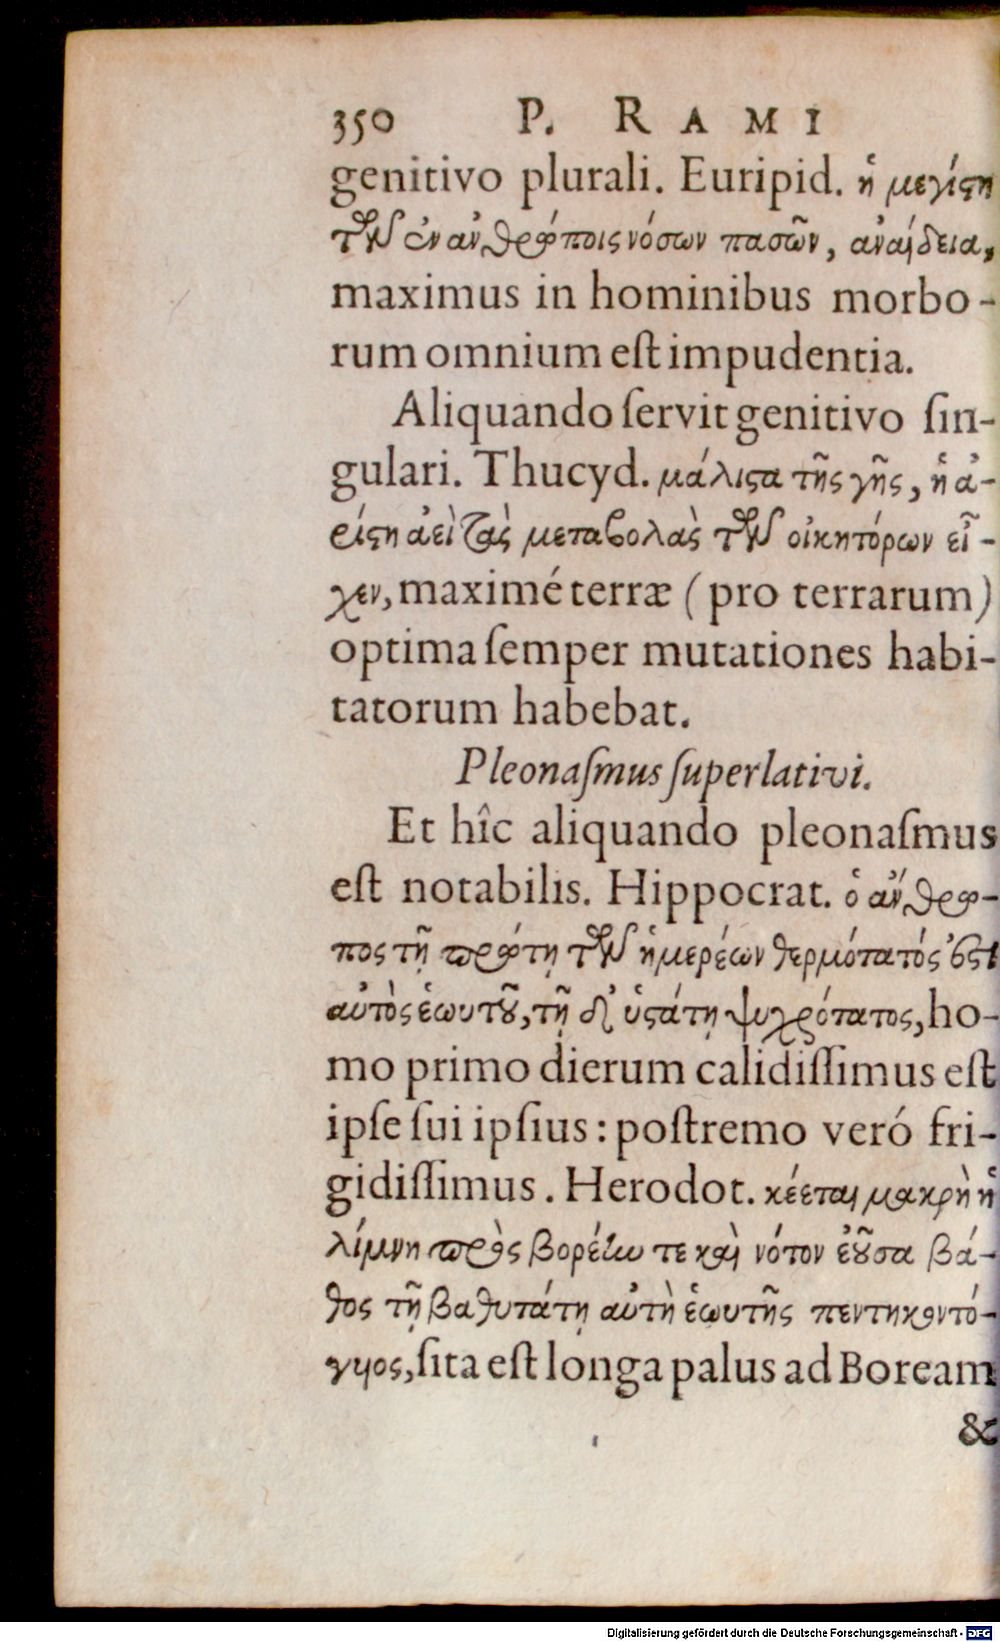 350 P. RAMI
genitivo plurali. Euripid. ἡ μεγίςη
τῶν ἐν ἀνθρώποις νόσων πασῶν, ἀναίδεια,
maximus in hominibus morbo-
rum omnium eſt impudentia.
Aliquando ſervit genitivo ſin-
gulari. Thucyd. μάλιςα τῆς γῆς, ἡ ἀ-
ρίςη ἀεὶ τὰς μεταβολὰς τῶν οἰκητόρων εἶ-
χεν, maximé terræ (pro terrarum)
optima ſemper mutationes habi-
tatorum habebat.
Pleonaſmus ſuperlativi.
Et hîc aliquando pleonaſmus
eſt notabilis. Hippocrat. ὁ ἄνθρω-
πος τῇ πρώτῃ τῶν ἡμερέων θερμότατός ἐςι
αὐτὸς ἑωυτοῦ, τῇ δ' ὑςάτῃ ψυχρότατος, ho-
mo primo dierum calidiſſimus eſt
ipſe ſui ipſius: poſtremo veró fri-
gidiſſimus. Herodot. κέεται μακρὴ ἡ
λίμνη πρὸς βορέην τε καὶ νότον ἐοῦσα βά-
θος τῇ βαθυτάτη αὐτὴ ἑωυτῆς πεντηκοντό-
γυιος, ſita eſt longa palus ad Boream
&
Digitalisierung gefördert durch die Deutsche Forschungsgemeinschaft - DFG